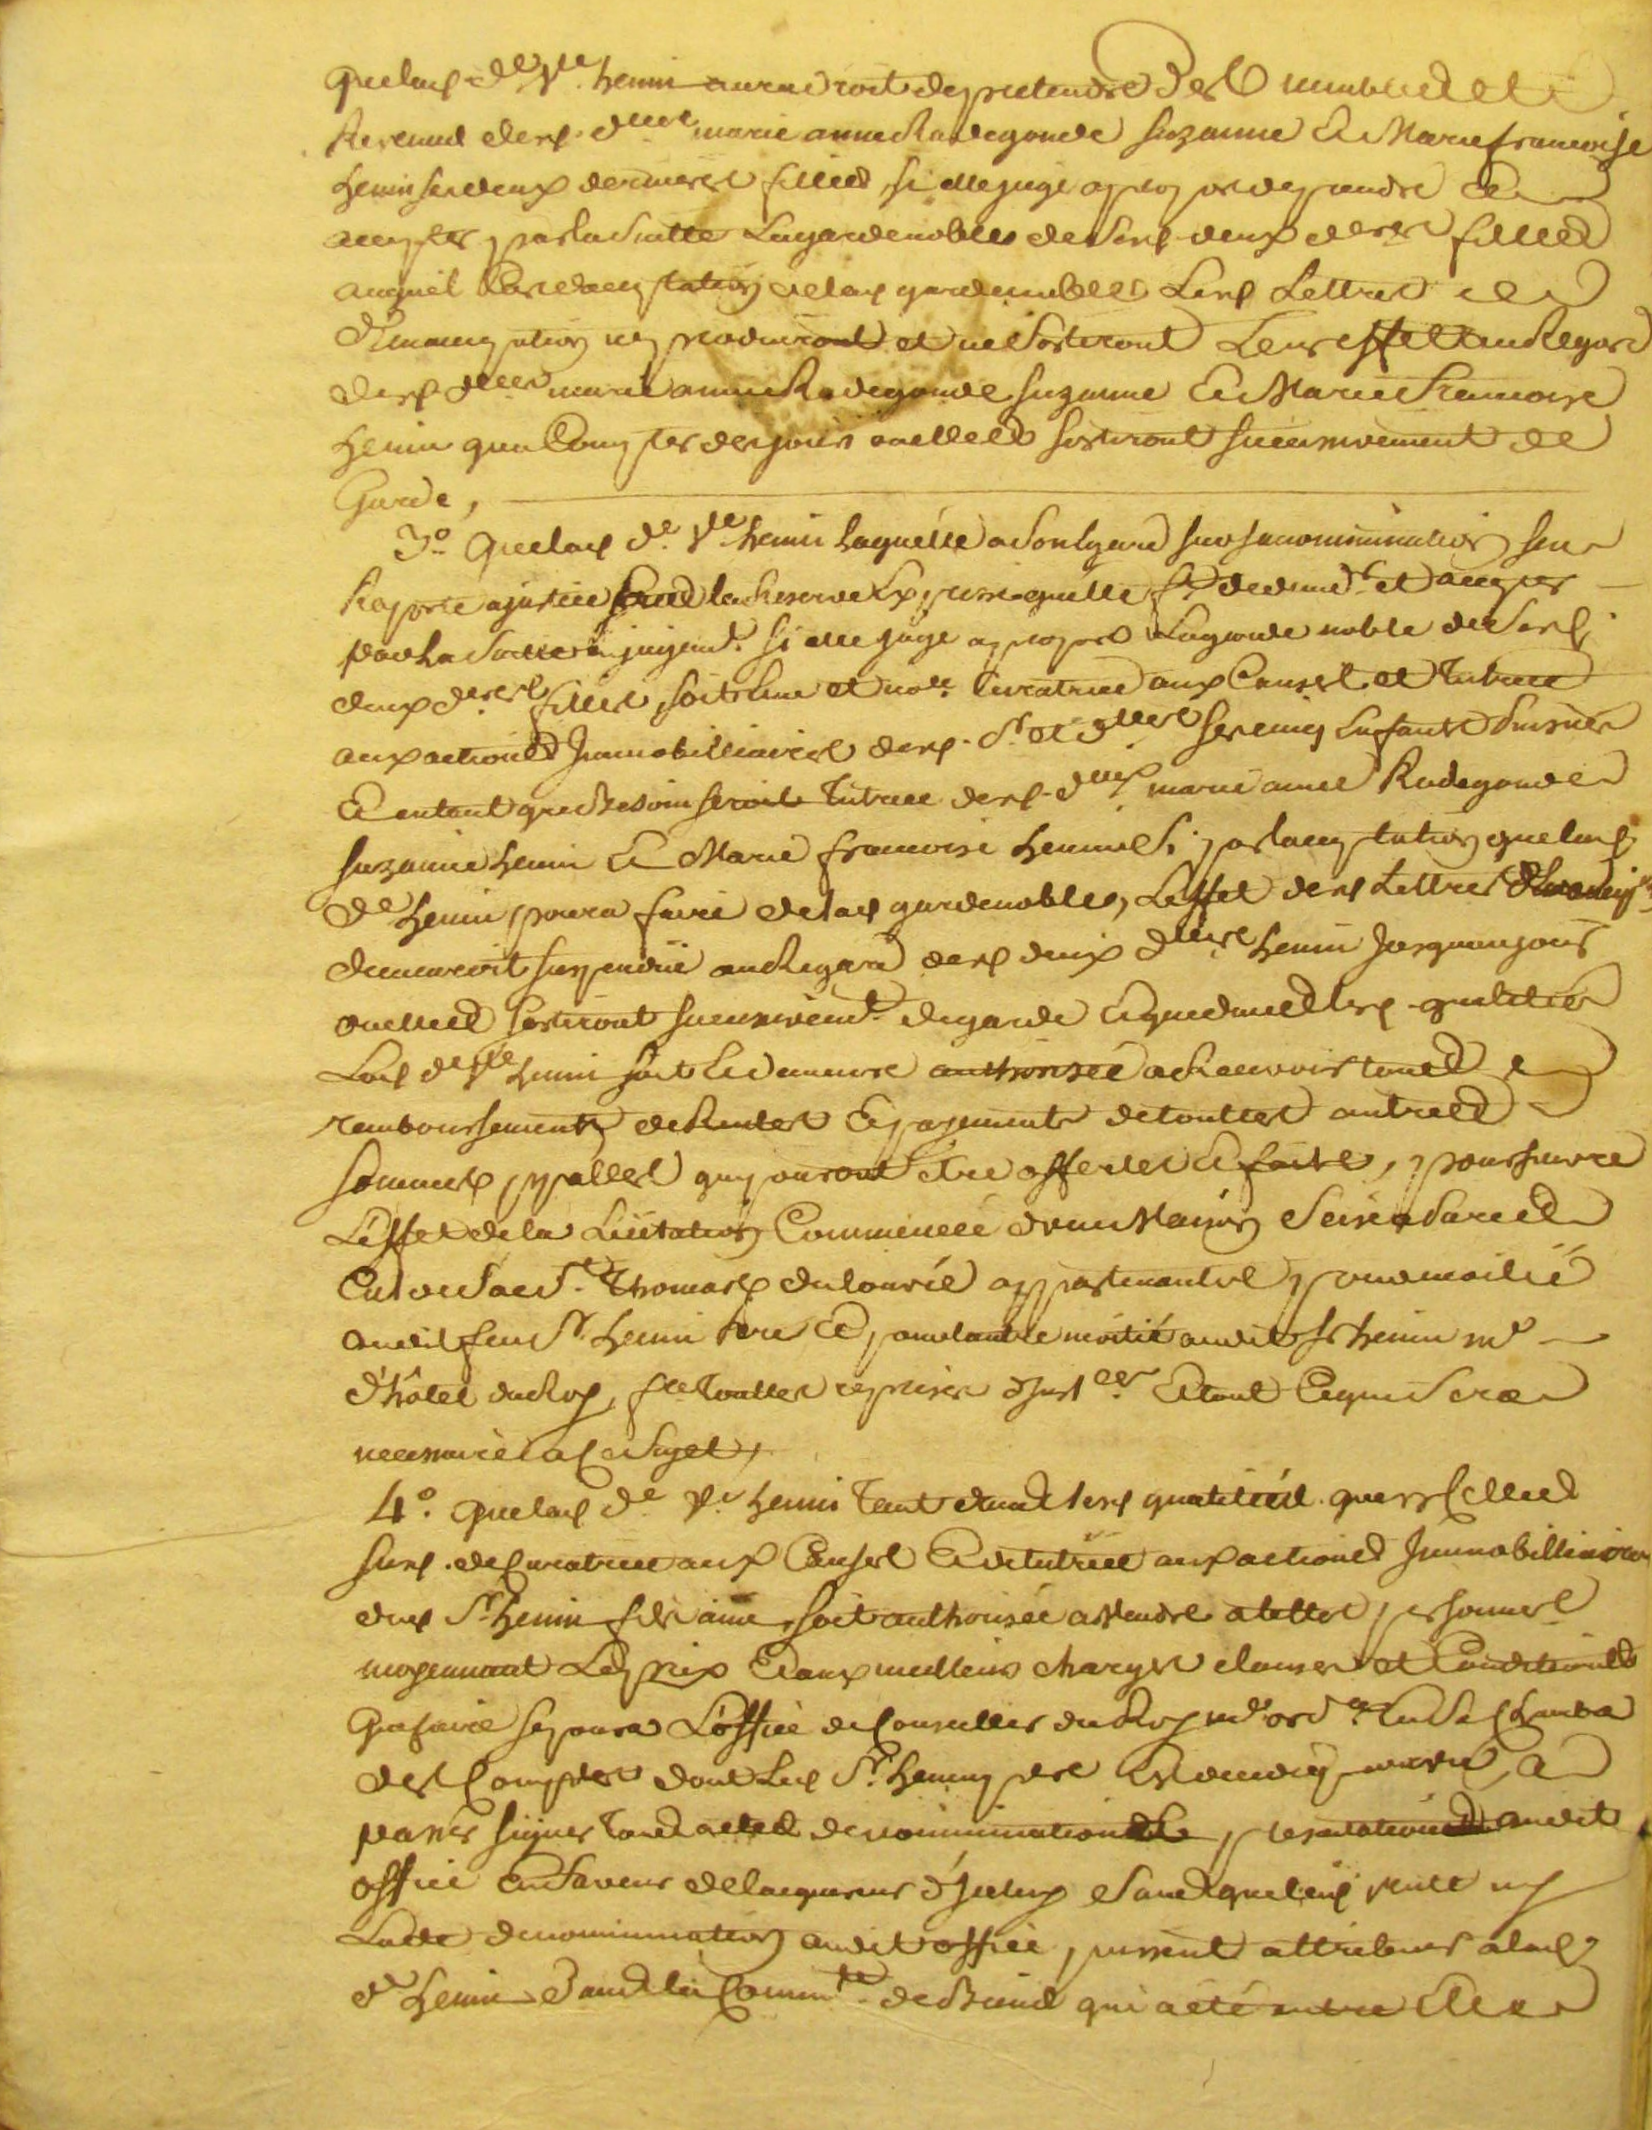 Que lad. de. ve. henin aura droit de pretendre des meubles et
Revenus desd. dlles. marie anne Radegonde Suzanne Et Marie francoise
henin ses deux dernieres filles, si elle juge apropos de prendre Et
accepter par la suitte la garde noble de sesd. deux dernieres filles
auquel Cas d'acceptation de lad. garde noble Lesd. Lettres
d'Emancipation ne produiront et ne sortiront Leur effet au Regard
desd. dlles. marie anne Radegonde Suzanne Et Marie francoise
henin qu'a Compter des jours ou elles sortiront successivement de
Garde,
3o. Que lad. de. ve. henin laquelle a son Egard sur sa nomination s'en
Raporte a justice sous la Reserve Expresse qu'elle ft. de demder. et accepter
par la suitte en jugemt. si elle juge apropos la garde noble de sesd.
deux deres. filles, soit Elue et nole. Curatrice aux Causes et Tutrice
aux actions Immobilliaires desd. Sr. et dlles. ses cinq Enfants puisnés
Et entant que besoin seroit Tutrice desd. dlles. marie anne Radegonde
Suzanne henin Et Marie francoise henin Si par l'acceptation que lad.
de. henin poura faire de lad. garde noble, L'effet desd. Lettres d'Emancipon.
demeuroit suspendu au Regard desd. deux dlles. henin jusqu'au jour
ou elles sortiront successivemt. de garde Et que dans lesd. qualités
Lad. de. ve. henin soit Et demeure authorisée a Recevoir tous
remboursements de Rentes Et payements de touttes autres
sommes, palles. qui pouront être offertes Et faites, poursuivre
L'effet de la Licitation Commencée d'une Maison Scise a Paris
Cul de Sac St. Thomas du Louvre appartenante pour moitié
audit feu Sr. henin Pere Et pour l'autre moitié audit Sr henin me.
d'hôtel du Roy, fre. touttes reprises d'Instces. Et tout Ce qui Sera
necessaire a Ce Sujet,
4o. Que lad. de. ve. henin Tant dans lesd. qualités que en Celles
susd. de Curatrice aux Causes Et de tutrice aux actions Immobilliaires
dud. Sr. henin fils ainé soit authorisée a Vendre a telles personnes
moyennant Les prix Et aux meilleurs charges clauses et Conditions
Que faire se poura L'office de Conseiller du Roy me. ordre. En Sa Chambre
des Comptes dont Led. Sr. henin pere Est decedé revetu, a
passer signer tous actes de nomination et presentation audit
office En faveur de l'acquereur d'Iceluy Sans que led. Vente ny
L'acte de nomination audit office, puissent attribuer a lad.
de. henin dans la Commté. de Biens qui a été entre Elle